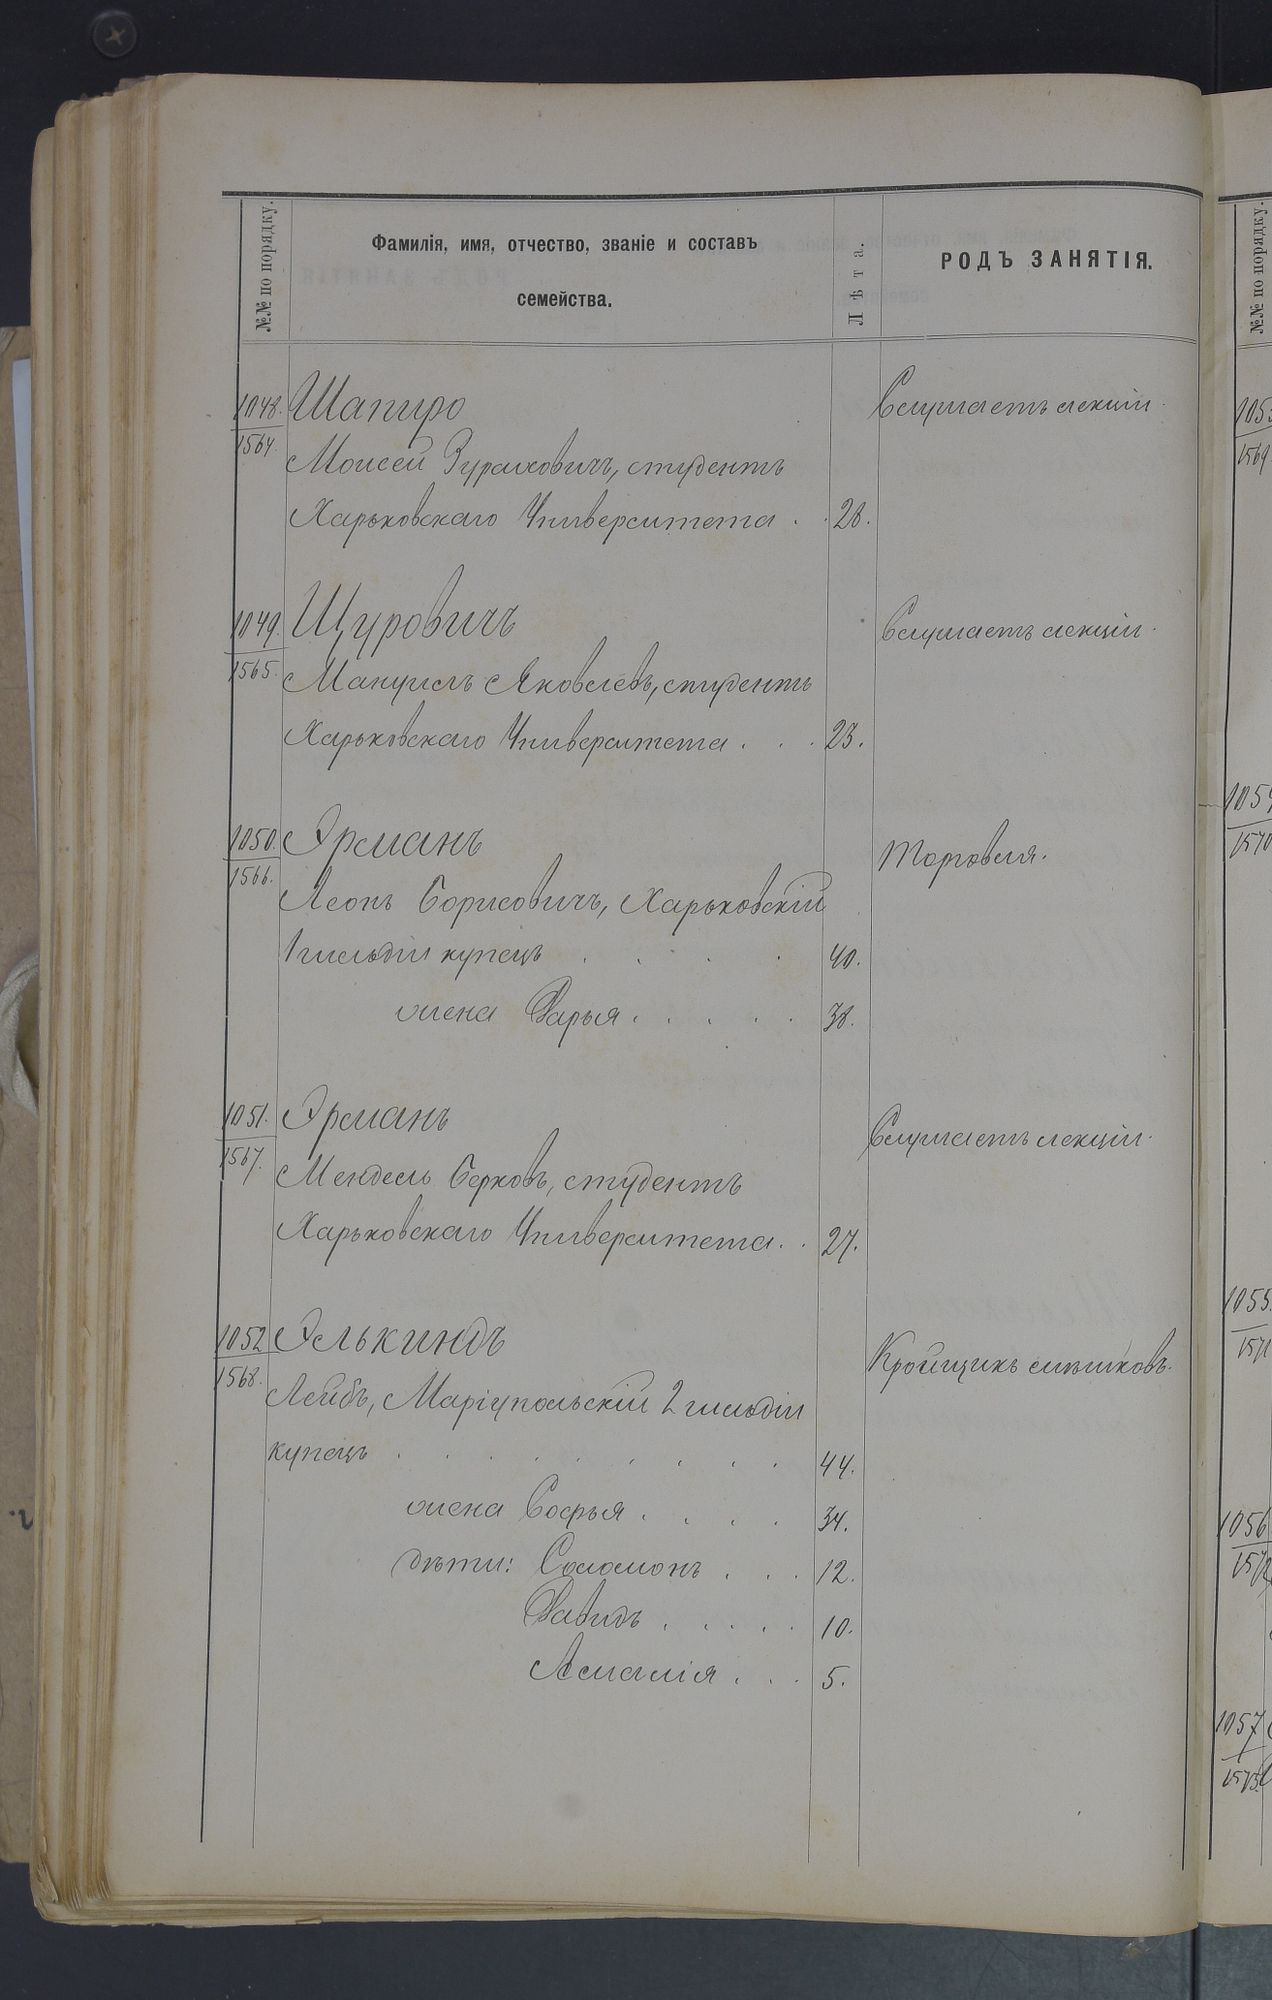 №№ по порядку.
Фамилія, имя, отчество, званіе и составъ
семейства.
Лѣта.
РОДЪ ЗАНЯТІЯ.
1048. Шапиро Слушаетъ лекціи.
1564. Моисей студентъ
Харьковскаго Университета . . 28.
1049. Щуровичъ Слушаетъ лекціи.
1565. Мануилъ Яковлевъ, студентъ
Харьковскаго Университета . . . 23.
1050. Эрманъ Торговля.
1566. Леонъ Борисовичъ, Харьковскій
1 гильдіи купецъ . . . . . 40.
жена Дарья . . . . . 38.
1051. Эрманъ Слушаетъ лекціи.
1567. Мендель Берковъ, студентъ
Харьковскаго Университета . . 27.
1052 Элькиндъ Кройщикъ мѣшковъ.
1568. Лейбъ, Маріупольскій 2 гильдіи
купецъ . . . . . . . . . 44.
жена Софья . . . . 34.
дѣти: Соломонъ . . . 12.
Давидъ . . . . . 10.
Амалія . . . 5.
№№ по порядку.
1054
1570
1055
1571
1056
1572
1057
1573